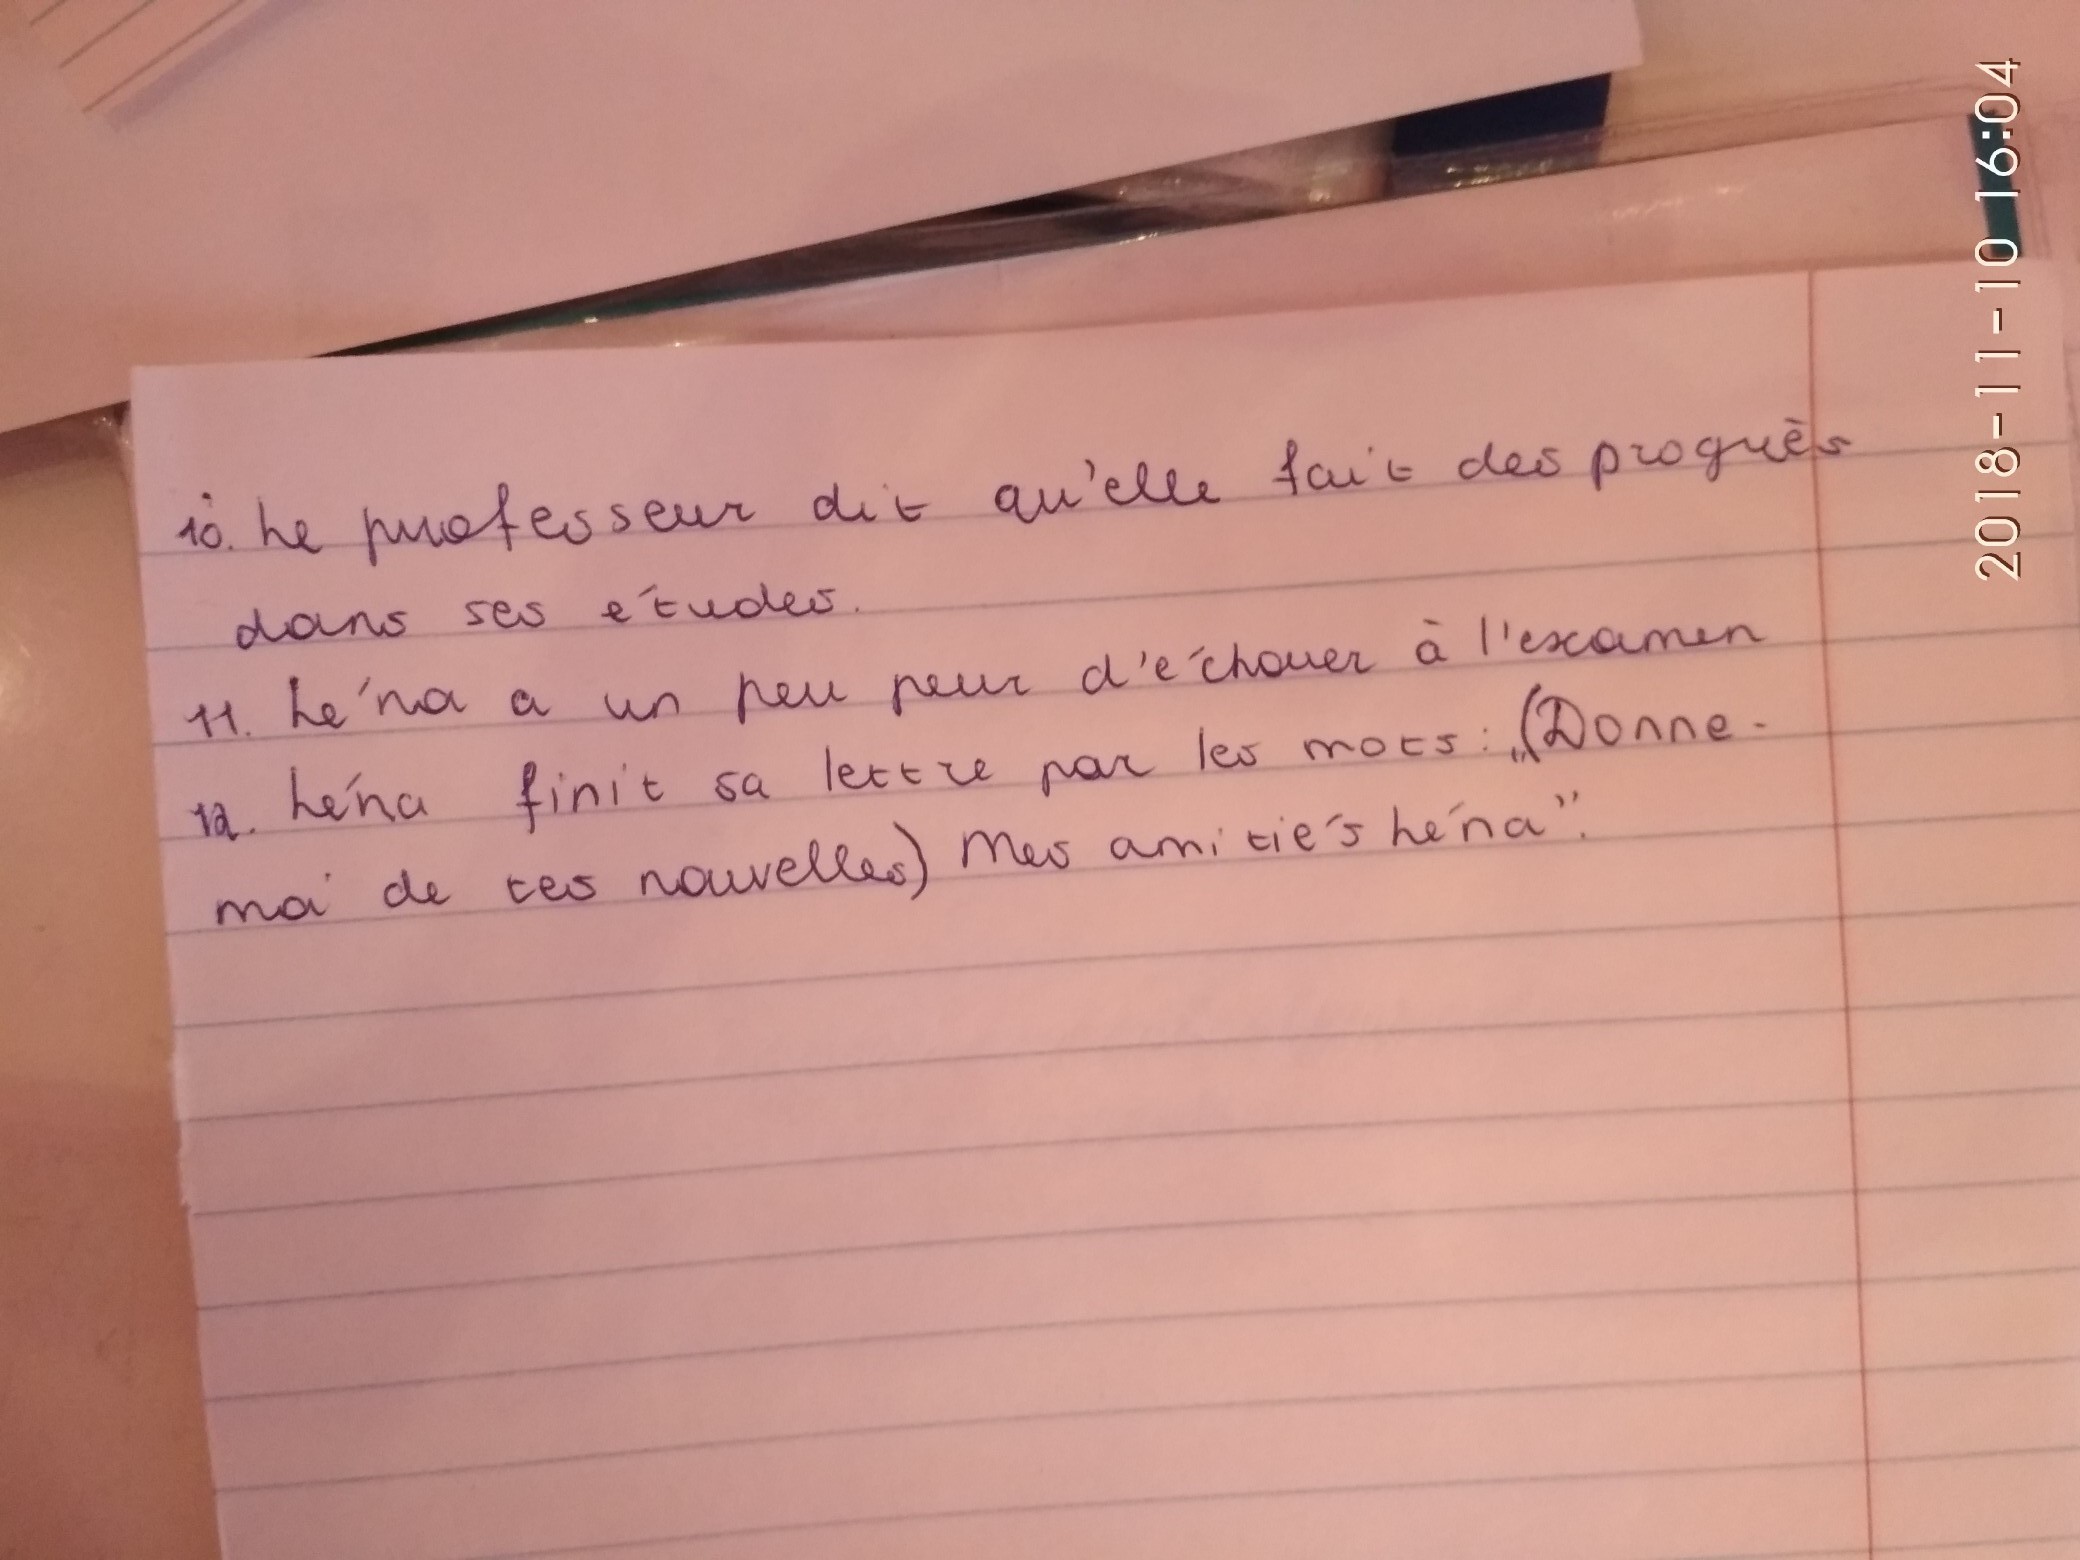 10. Le professeur dit qu'elle fait des progrès
dans ses études.
11. Léna a un peu peur d'échouer à l'examen
12. Léna finit sa lettre par les mots: „(Donne-
moi de tes nouvelles) Mes amitiés Léna”.
2018-11-10 16:04